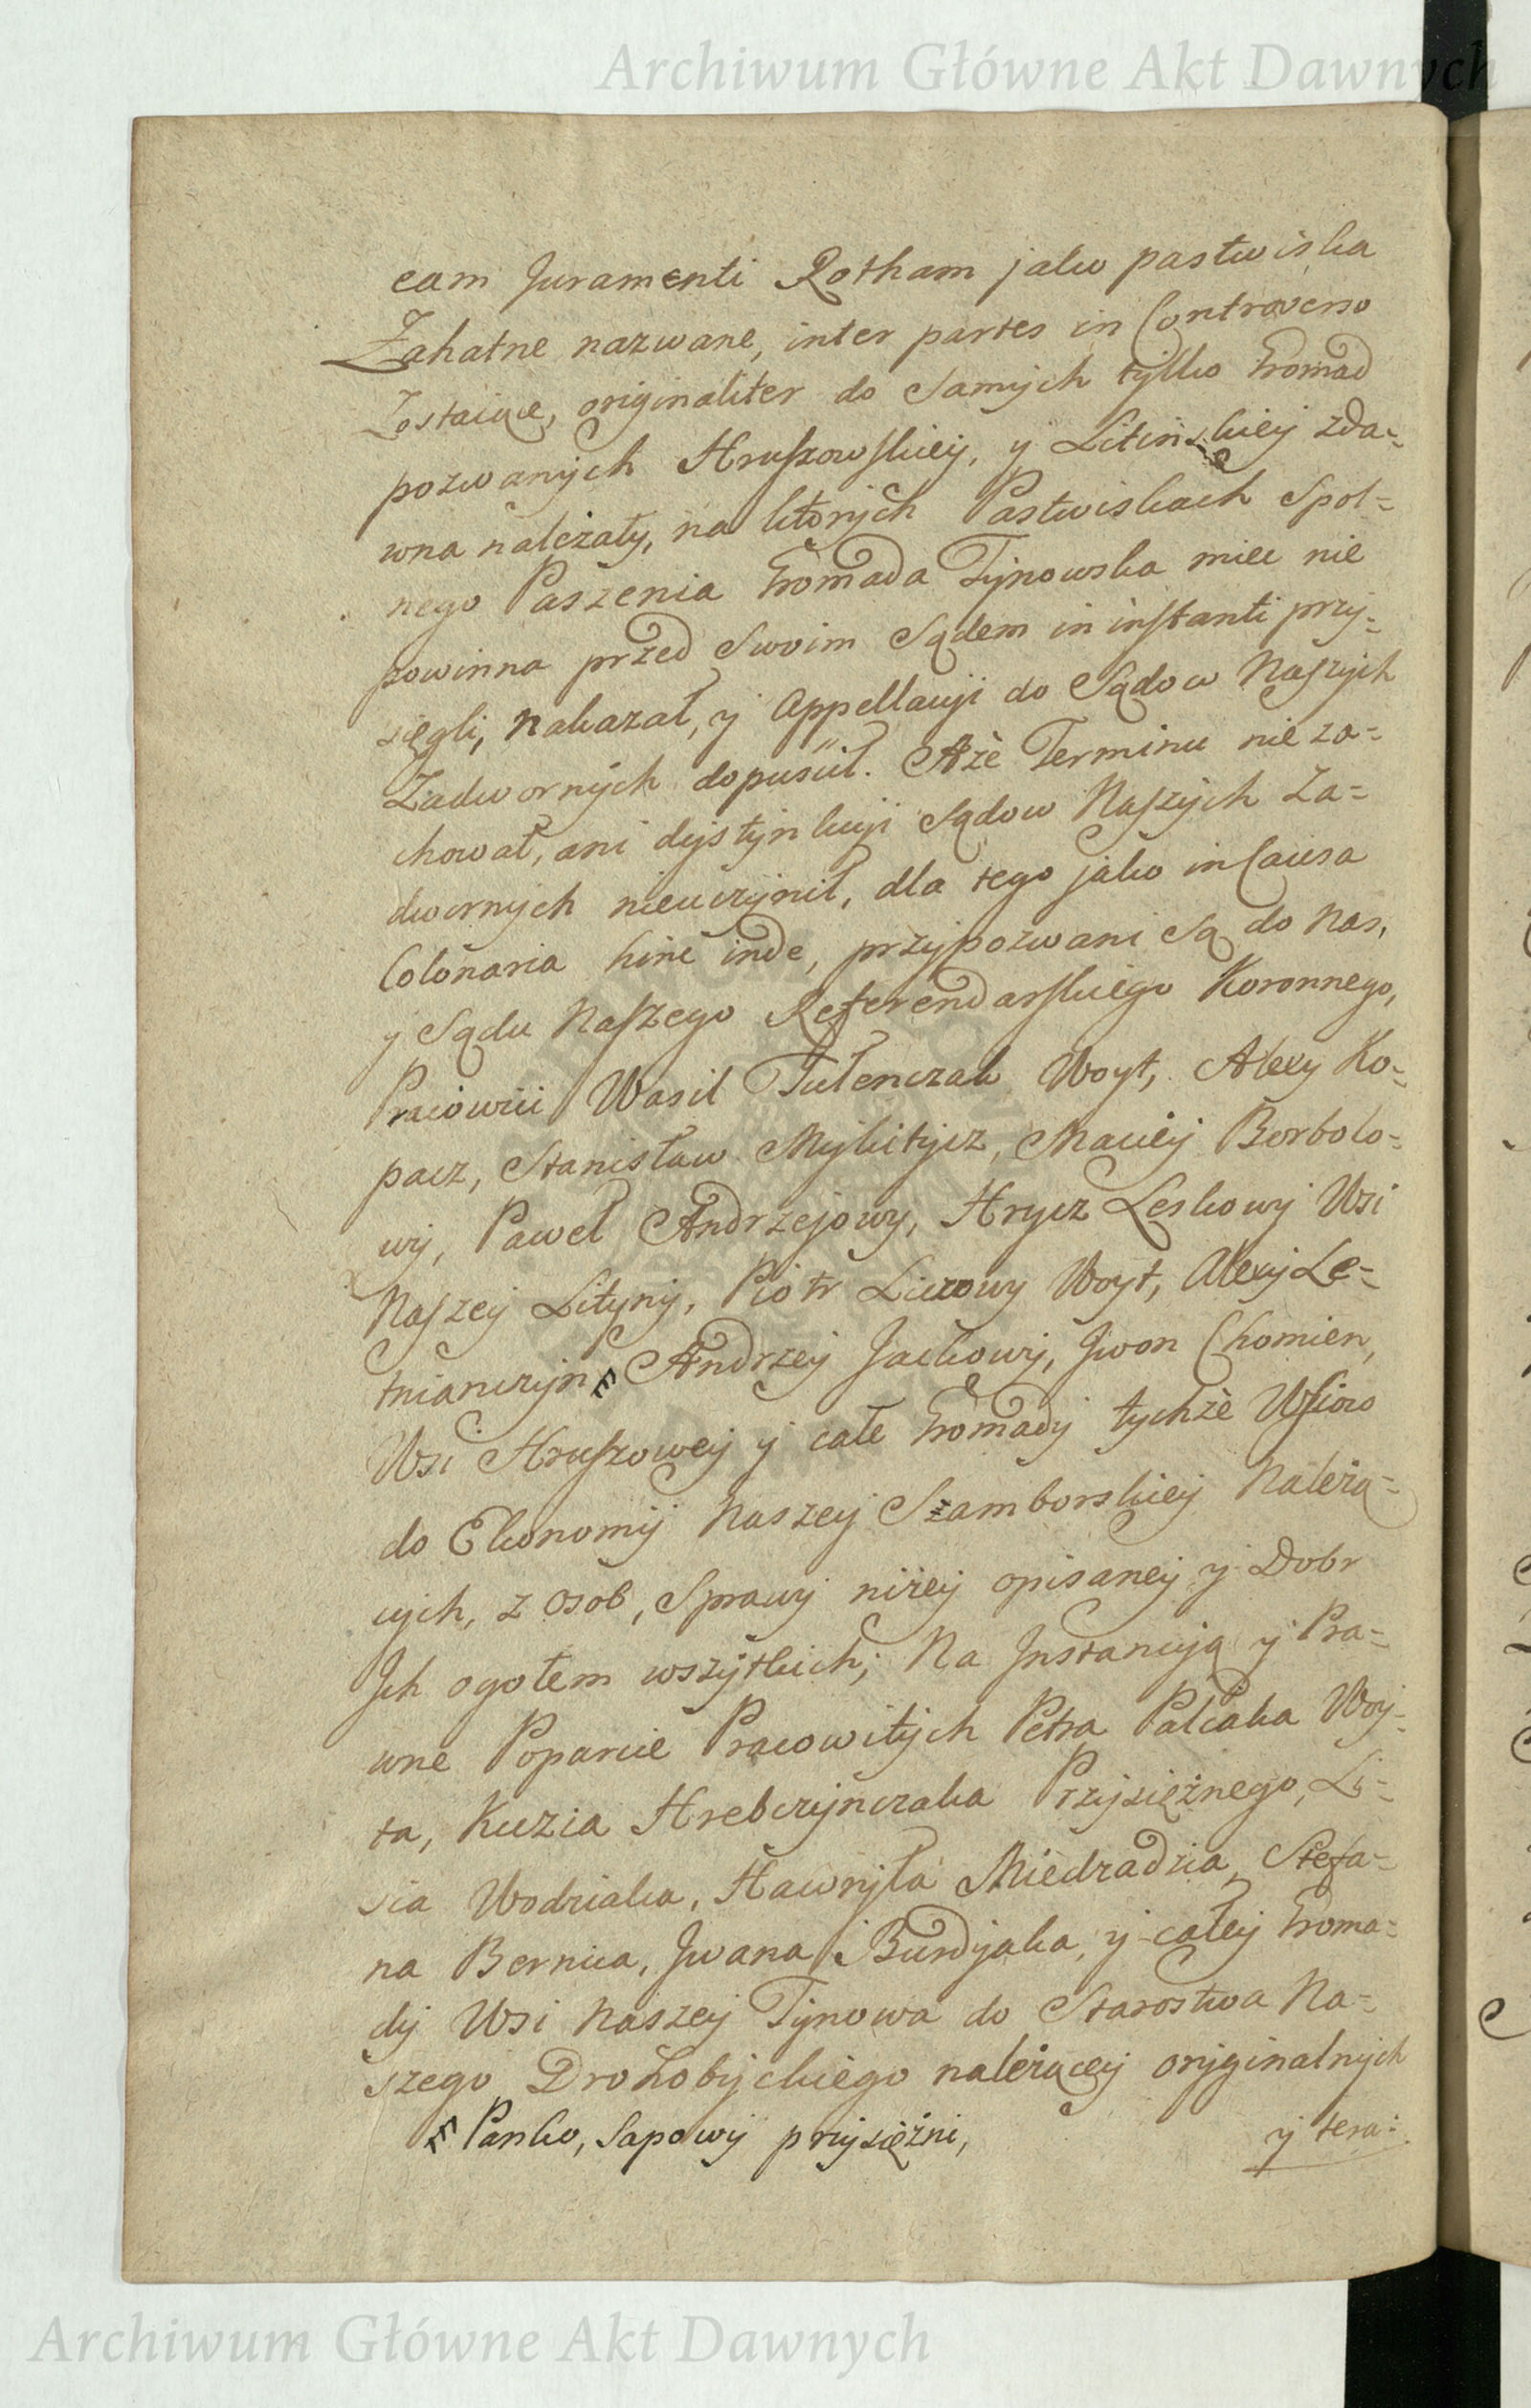 Archiwum Główne Akt Dawnych
eam Juramenti Rotham jako pastwiska
Zahatne nazwane, inter partes in Controverso
Zostaiące, originaliter do Samych tylko Gromad
pozwanych Hruszowskiey, y Litinskiey zda-
wna należały, na ktorych Pastwiskach Spol-
nego Paszenia Gromada Tynowska miec nie
powinna przed Swoim Sądem in instanti przy-
sięgli, nakazał, y Appellacyi do Sądow Naszych
Zadwornych dopuscił. Aże Terminu nie za-
chował, ani dystynkcyi Sądow Naszych Za-
dwornych nieuczynił, dla tego jako in Causa
Colonaria hinc inde, przypozwani Są do Nas,
y Sądu Naszego Referendarskiego Koronnego,
Pracowici Wasil Tutenczak Woyt, Alexy Ko-
pacz, Stanisław Mykitycz, Maciey Borbolo-
wy, Paweł Andrzejowy, Hrycz Leskowy Wsi
Naszey Lityny, Piotr Liczowy Woyt, Alexy Le-
tnianczyn Andrzey Jackowy, Jwon Chomien,
Wsi Hruszowey y całe Gromady tychże Wsiow
do Ekonomij Naszey Szamborskiey Należą-
cych, z osob, Sprawy niżey opisaney y Dobr
Ich ogołem wszytkich; Na Jnstancyją y Pra-
wne Poparcie Pracowitych Petra Palcaka Woy-
ta, Kuzia Hrebczynczaka Przysiężnego, Li-
sia Wodziaka, Hawryła Miedzadzia, Stefa-
na Bernica, Jwana Burdyaka, y całey Groma-
dy Wsi Naszey Tynowa do Starostwa Na-
szego Drohobyckiego należącey oryginalnych
Panko, Sapowy przysiężni,
y tera-
Archiwum Główne Akt Dawnych